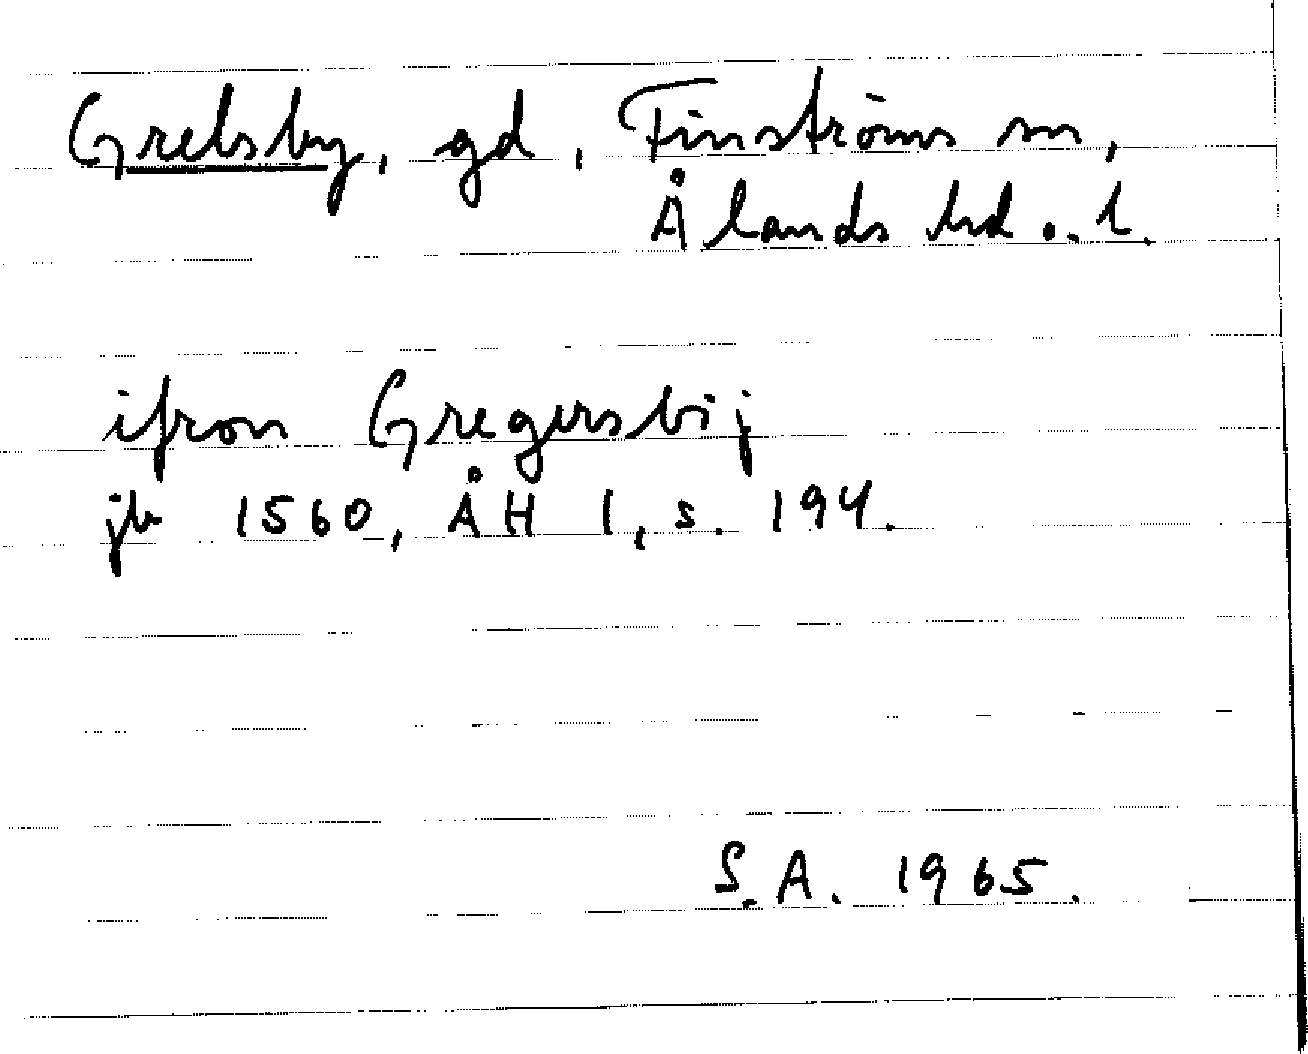 Grelsby, gd, Finströms sn,
Ålands hd o. l.
ifron Gregersbij
jb 1560, ÅH 1, s. 194.
S.A. 1965.